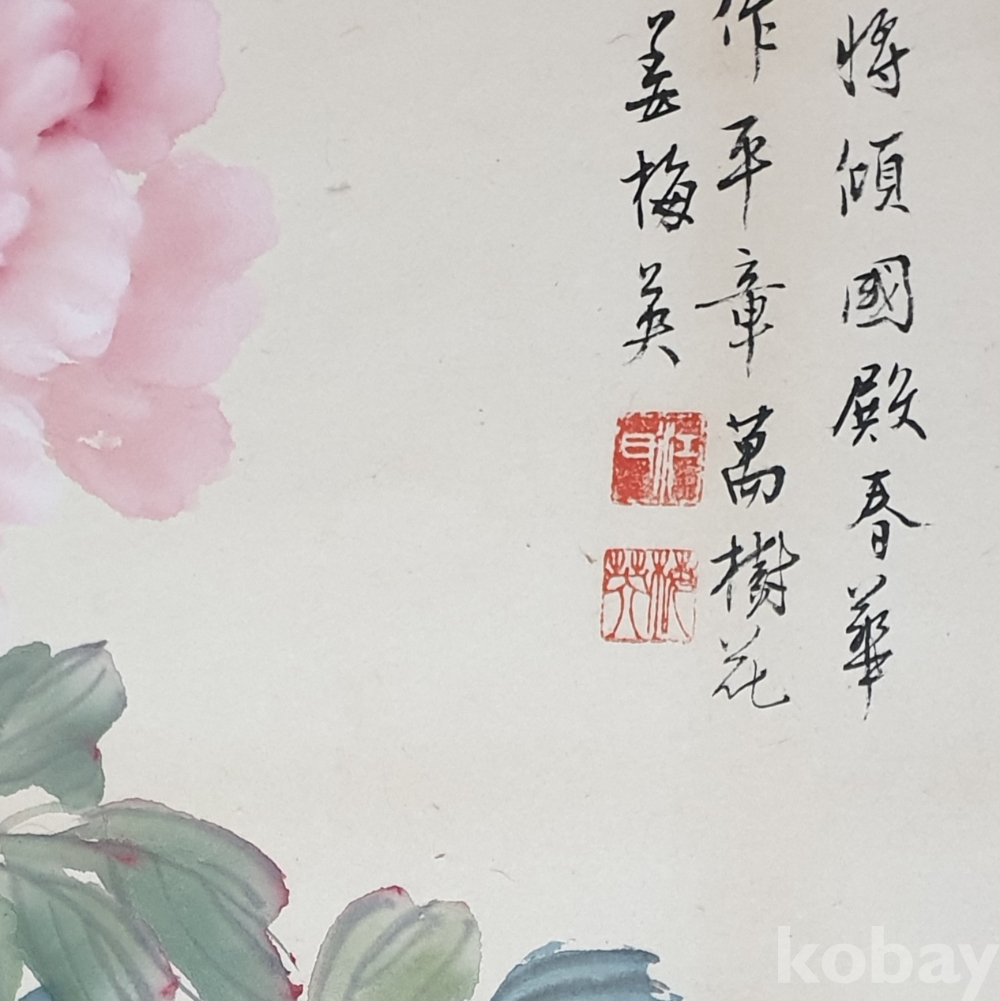 將傾國殿春華
作平章萬樹花
姜梅英
梅英
kobay